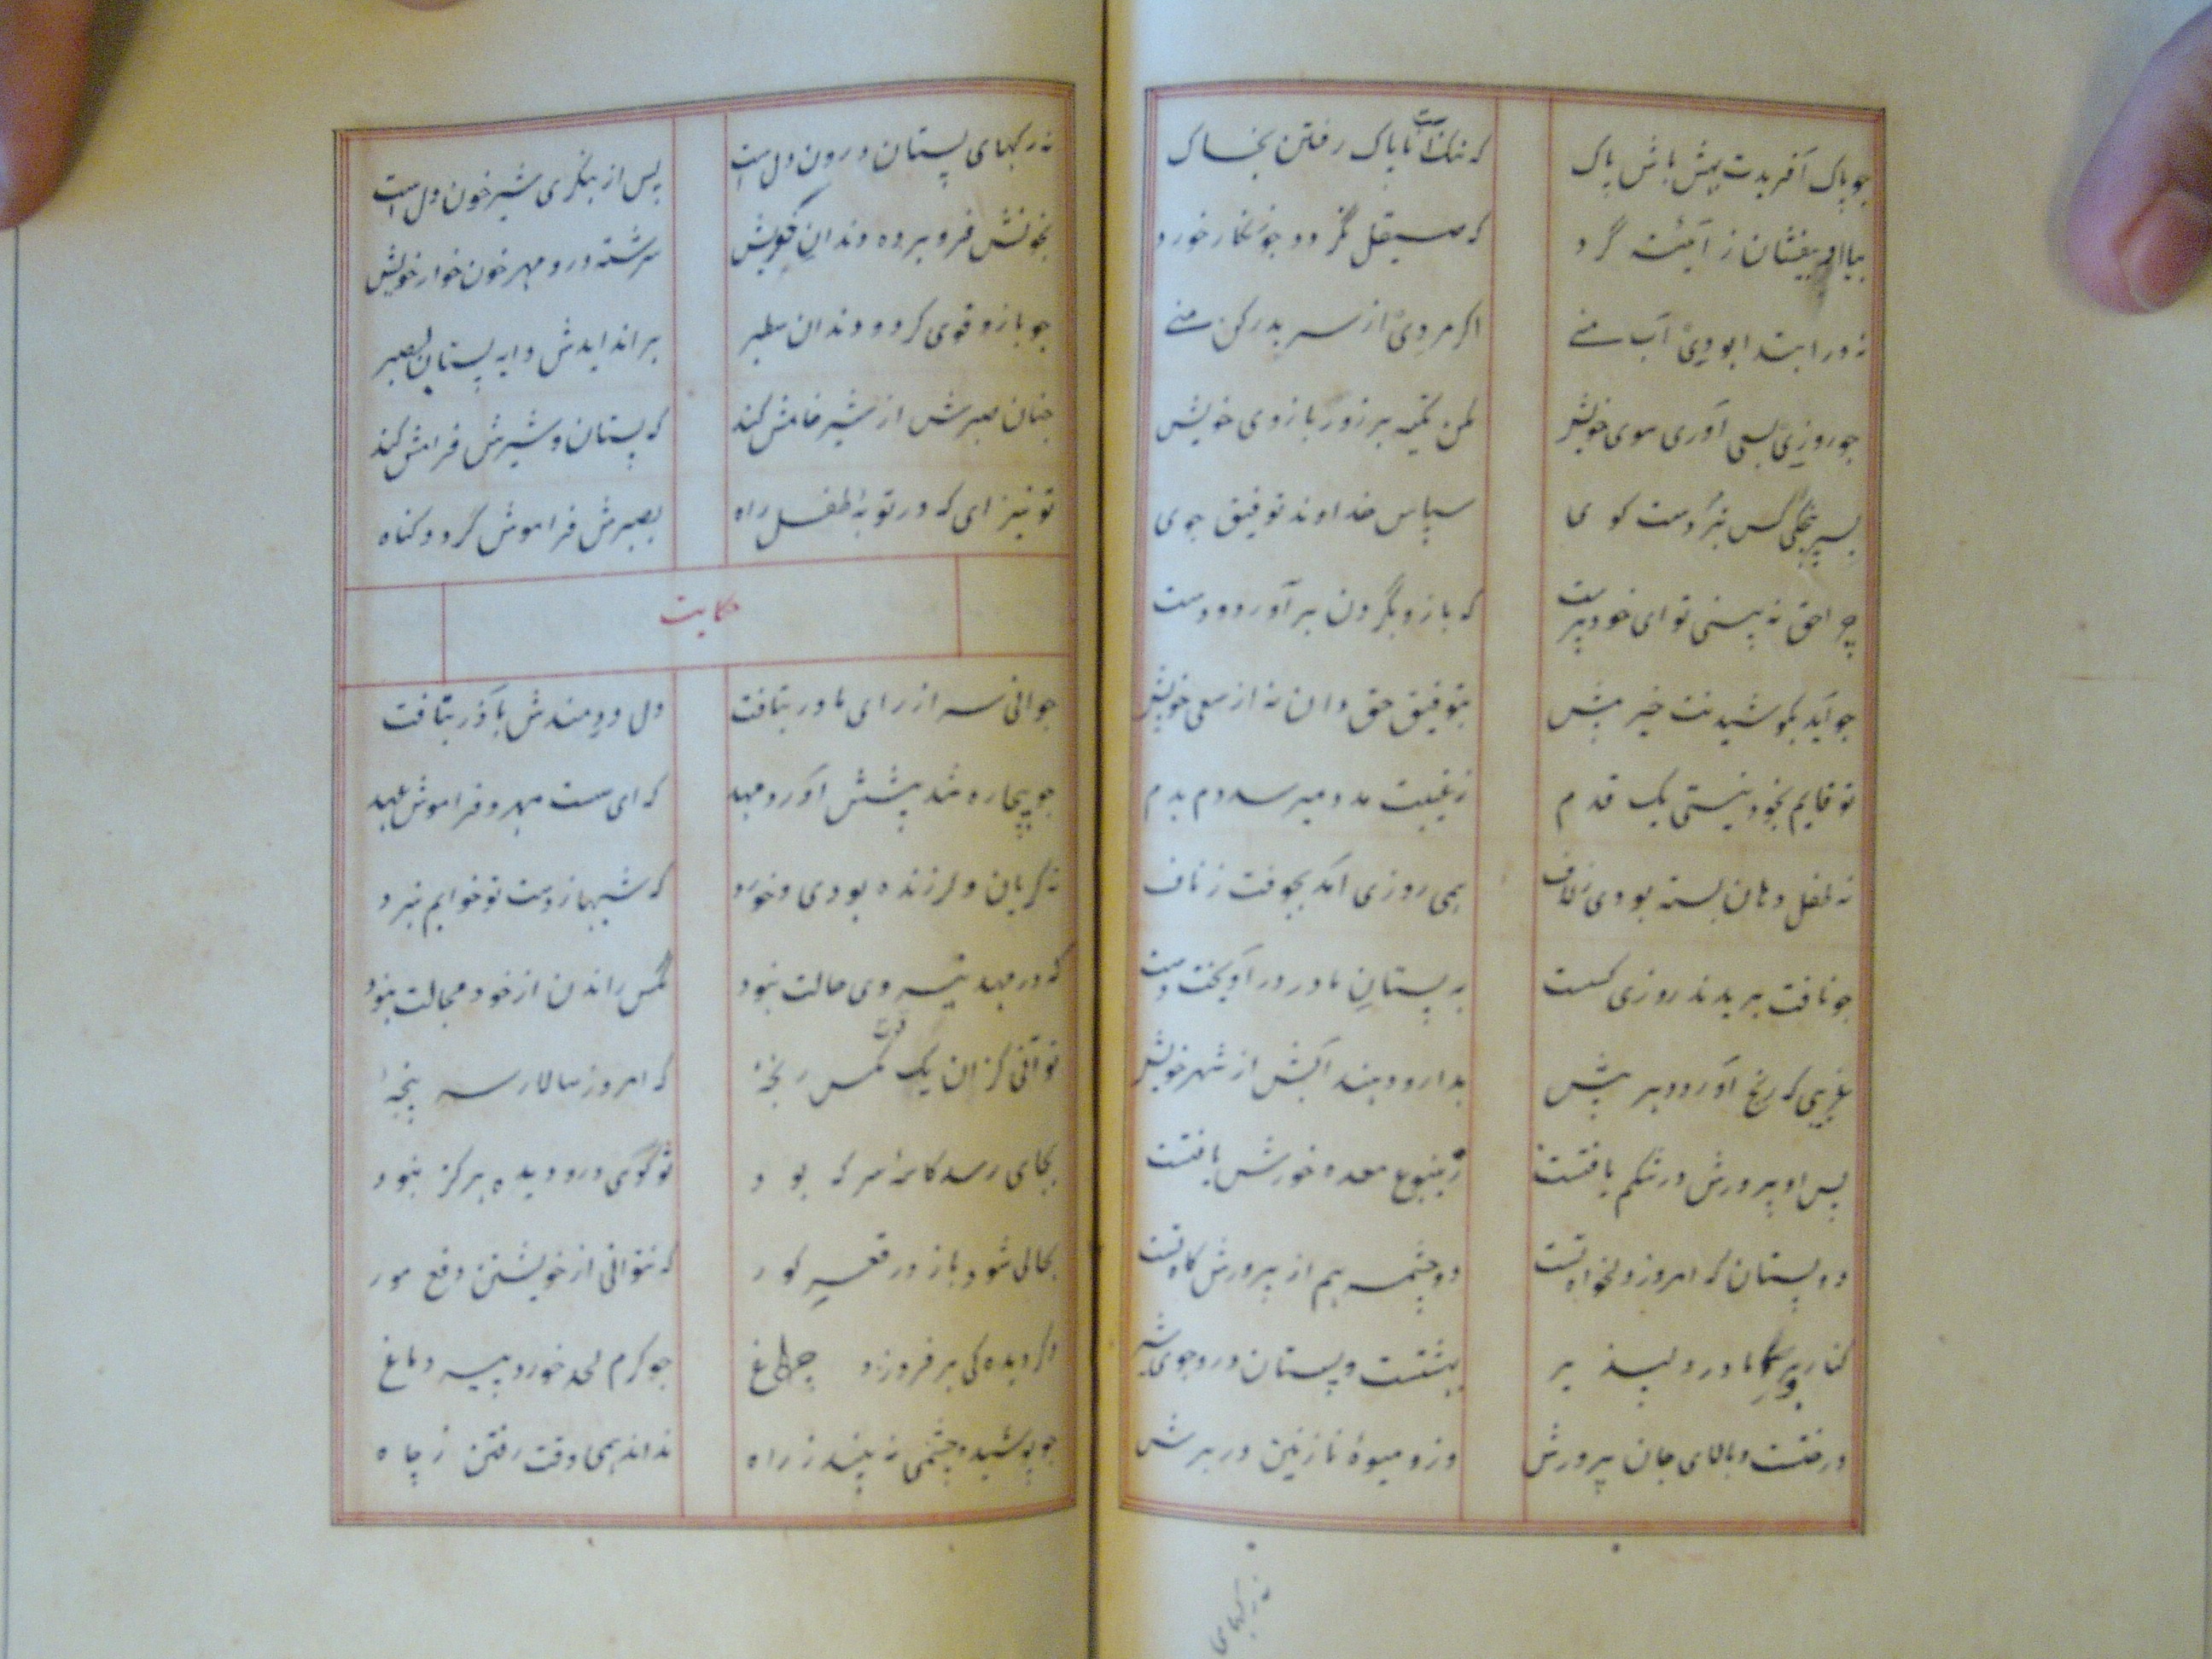 چو پاک آفریدت بهش باش پاک که ننگ است ناپاک رفتن بخاک
بیاپی بیفشان ز آئینه گرد که صیقل نگیرد چو زنگار خورد
نه در ابتدا بودی آب منے اگر مردی از سر بدر کن منے
چو روزی بسعی آوری سوی خویش مکن تکیه بر زور بازوی خویش
بسرپنجگی کس نبردست کوی سپاس خداوند توفیق جوی
چرا حق نه بینی تو ای خودپرست که بازو بگردون برآورد و دست
چو آید بکوشیدنت خیر پیش بتوفیق حق دان نه از سعی خویش
تو قایم بخود نیستی یک قدم ز غیبت مدد میرسد دم بدم
نه طفل دهان بسته بودی ز لاف همی روزی آمد بجوفت ز ناف
چو نافت بریدند روزی کسست به پستان مادر در آویخت دست
غریبی که رنج آورد دهر پیش بدارو دهند آبش از شهر خویش
پس او پرورش در شکم یافتست ز ینبوع معده خورش یافتست
دو پستان که امروز دلخواه تست دو چشمه هم از پرورش گاه تست
کنار و بر مادر دلپذیر بهشتست و پستان درو جوی شیر
درختست و بالای جان پرورش وزو میوهٔ نازنین در برش
نه رکهای
نه رکهای پستان درون دل است پس از بنگری شیر خون دل است
بخونش فرو برده دندان کویش سرشته درو مهر خون خوار خویش
چو بازو قوی کرد و دندان سطبر بر اندایدش دایه پستان بصبر
چنان صبرش از شیر خامش کند که پستان و شیرش فرامش کند
تو نیز ای که در توبهٔ طفل راه بصبرش فراموش گردد کناه
حکایت
جوانی سر از رای مادر بتافت دل دردمندش بآذر بتافت
چو بیچاره شد پیشش آورد مهد که ای سست مهر و فراموش عهد
نه گریان و لرزنده بودی و خورد که شبها ز دست تو خوابم نبرد
که در مهد نیروی حالت نبود مگس راندن از خود مجالت نبود
تو آنی کزان یک مگس رنجهٔ که امروز سالار سر پنجهٔ
بجای رسد کاسهٔ سر که بود تو گوی درو دیده هرگز نبود
بحالی شود باز در قعر کور که نتوانی از خویشتن دفع مور
دکر دیده کی بر فروزد چراغ چو کرم لحد خورد پیه دماغ
چو پوشیده چشمی نه بینند ز راه نداند همی وقت رفتن ز چاه